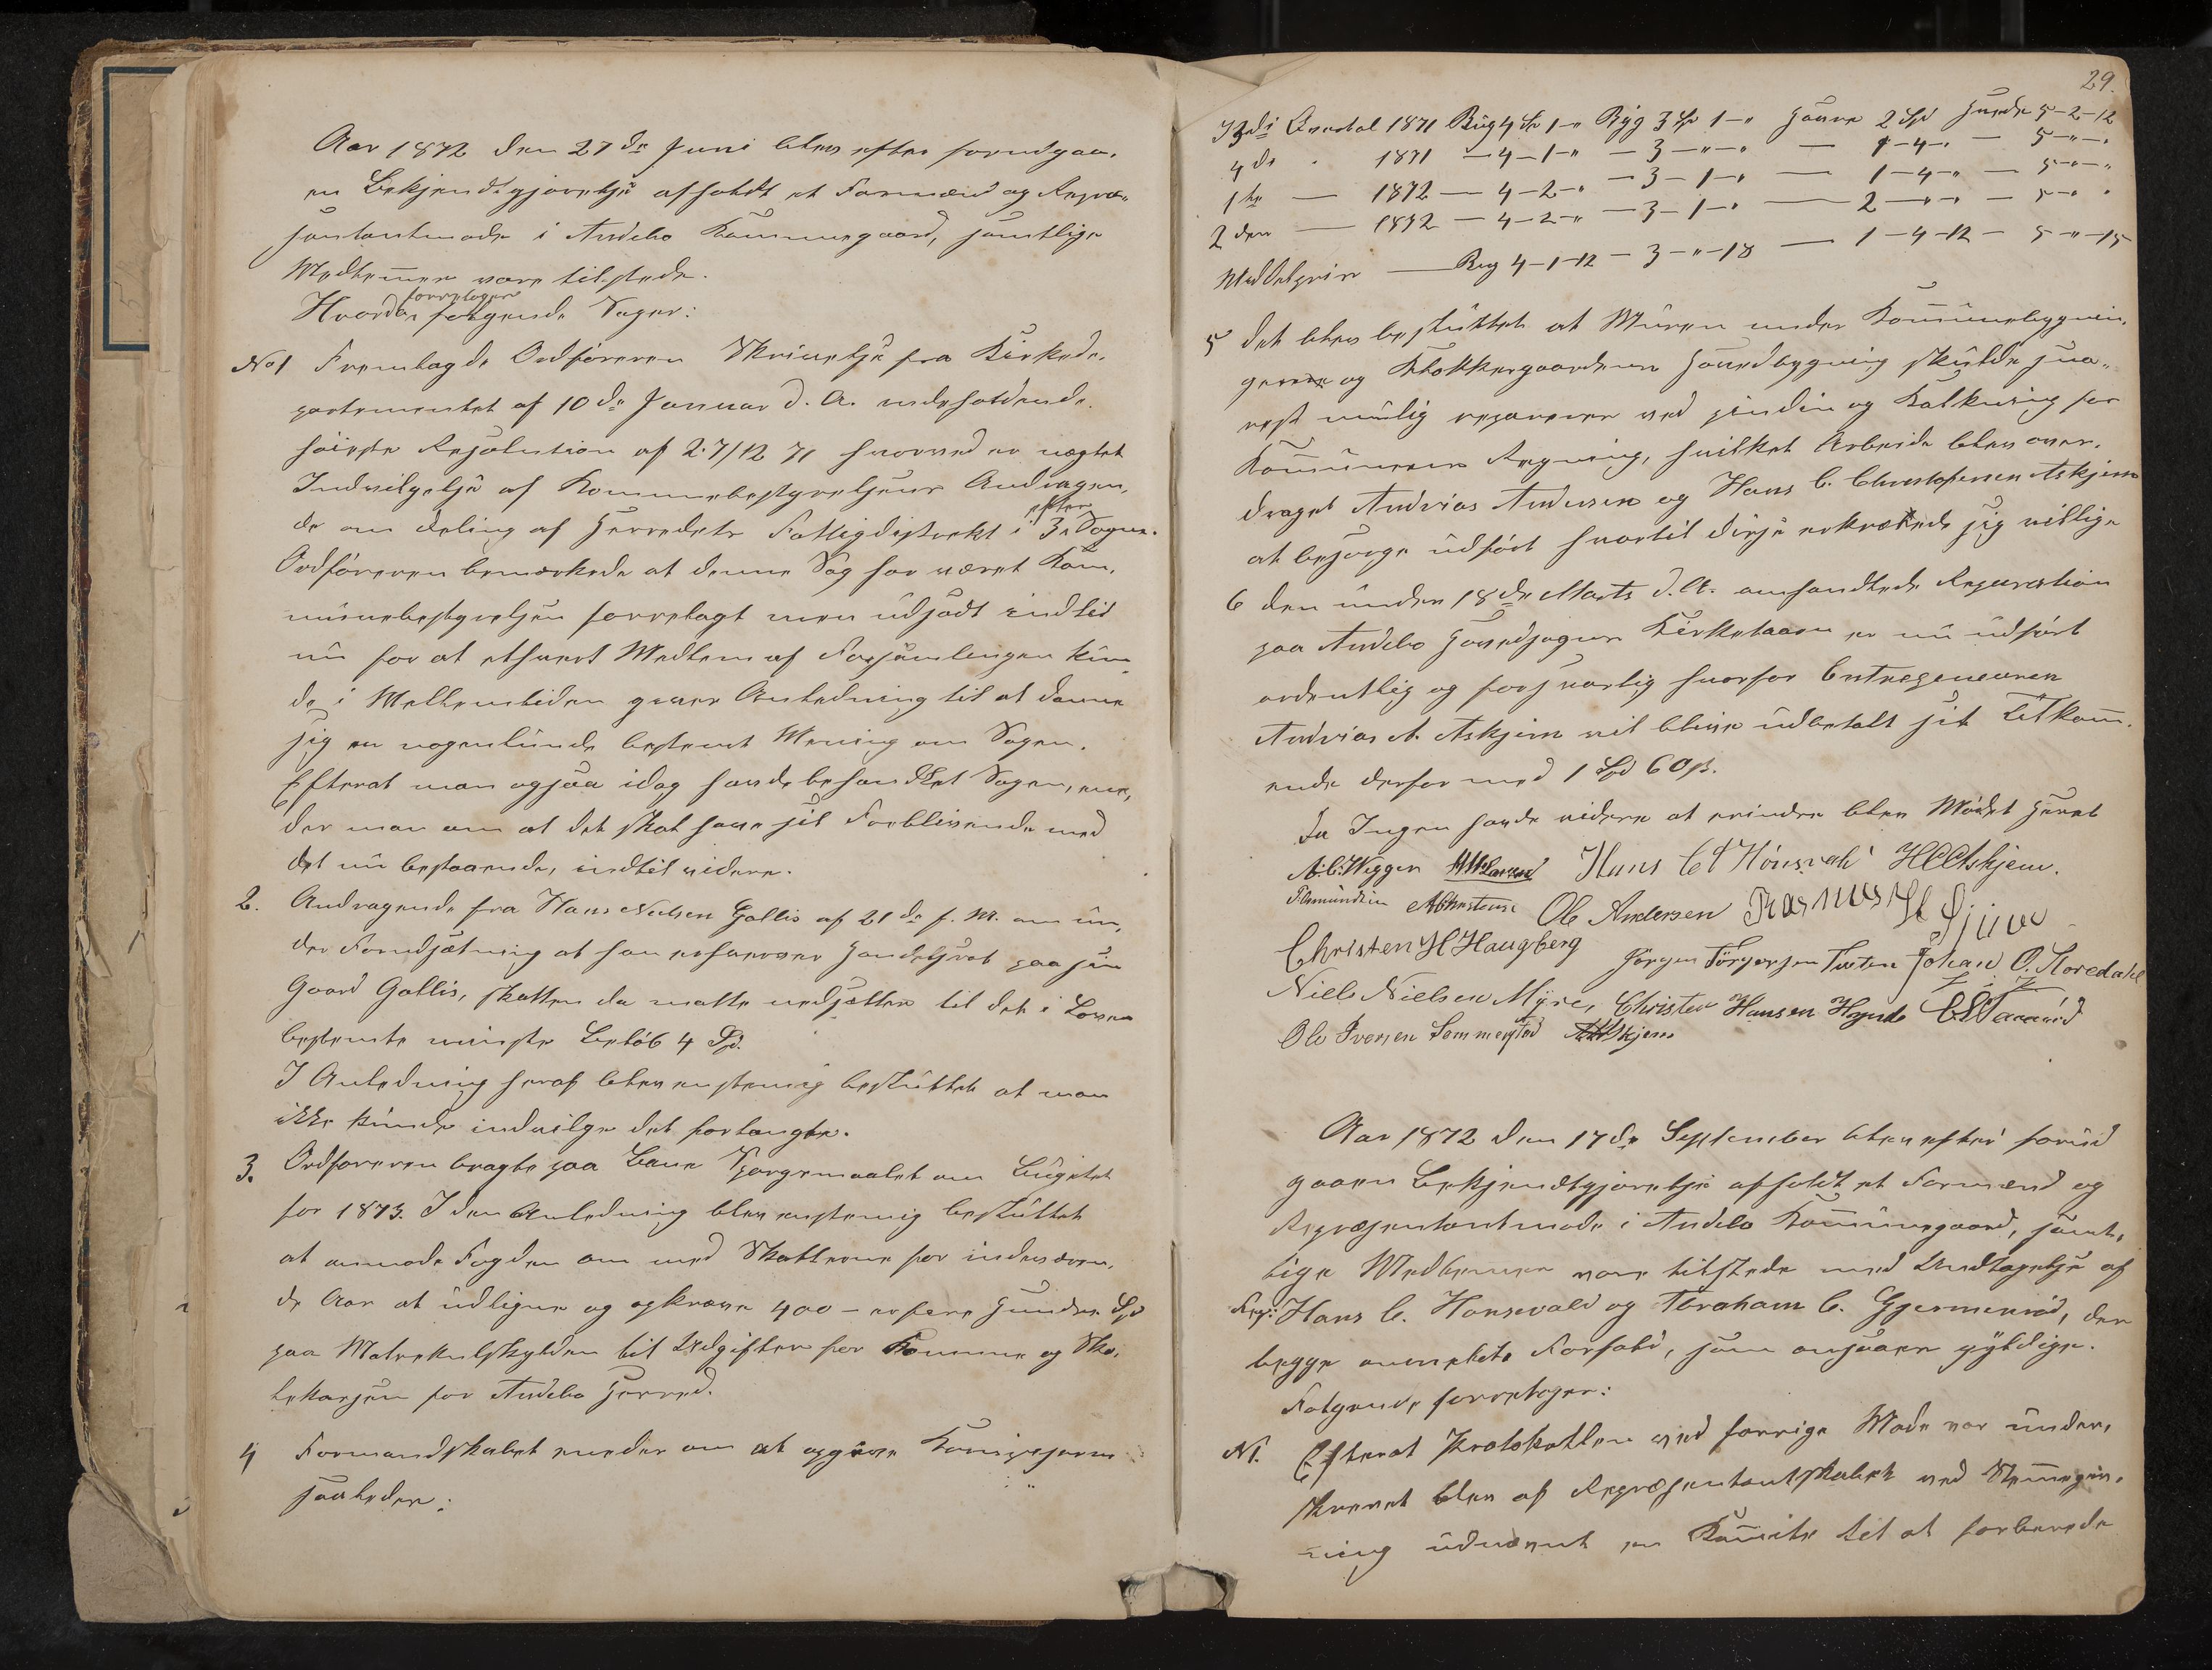 Aar 1872 den 27de Juni blev efter forudgaa-
en Bekjendtgjørelse afholdt et Formænd og Repræ-
sentantmøde i Andebo Kommunegaard, samtlige
Medlemer vare tilstede.
Hvorda foretoges følgende Sager:
No 1 Fremlagde Ordføreren Skrivelse fra Kirkede-
partementet af 10de Januar d. A. indeholdende
høieste Resolution af 27/12 71 hvorved er nægtet
Indvilgelse af Kommunebestyrelsens Andragen-
de om deling af Herredets Fattigdistrikt i efter 3e Sogne.
Ordføreren bemærkede at denne Sag har været Kom-
munebestyrelsen forelagt men udsadt indtil
nu for at ethvert Medlem af Forsamlingen kun-
de i Mellemtiden gives Anledning til at danne
sig en nogenlunde bestemt Mening om Sagen.
Efterat man ogsaa idag havde behandlet Sagen, ene-
der man om at det skal have sit Forblivende med
det nu bestaaende, indtil videre.
2. Andragende fra Hans Nielsen Gallis af 21de f. M. om un-
der Forudsætning at han erhverver Handelsret paa sin
Gaard Gallis, skatten da matte nedsættes til det i Loven
bestemte minste Beløb 4 Spd.
I Anledning heraf blev enstemig besluttet at man
ikke kunde indvilge det forlangte.
3. Ordføreren bragte paa Bane Spørgsmaalet om Bugetet
for 1873. I den Anledning blev enstemig besluttet
at anmode Fogden om med Skatterne for indeværen-
de Aar at udligne og opkræve 400 – er fire Hundre Spd
paa Matrekulskylden til Udgifter for Komune og Sko-
lekassen for Andebo Herred.
4 Formandskabet eneder om at opgive Kornprisern
saaledes:
29.
3die Qvartal 1871 Rug 4 Sp 1-" Byg 3 Sp 1-" Havre 2 Spd Hvede 5-2-12
4de " 1871 — 4-1-" — 3-"-" — 1-4-" — 5-"-"
1te — 1872 — 4-2-" — 3-1-" — 1-4-" — 5-"-"
2den — 1872 — 4-2-" — 3-1-" — 2-"-" — 5-"-"
Middelpris — Rug 4-1-12 — 3-"-18 — 1-4-12 — 5-"-15
5 det blev besluttet at Muren under Komunebygnin-
gerne og Klokkergaardens Hovedbygning skulde sna-
rest mulig repareres ved pindin og Kalkning for
Komunens Regning, hvilket Arbeide blev over-
draget Andrias Andersen og Hans C. Christofersen Askjem
at besørge udført hvortil disse erkrærede sig villige
6 den under 18de Marts d. A. omhandlede Reparation
paa Andebo Hovedsogns Kirketaarn er nu udført
ordentlig og forsvarlig hvorfor Entrepeneuren
Andrias A. Askjem vil blive udbetalt sit Tilkom-
ende derfor med 1 Spd 60 ß.
Da Ingen havde videre at erindre blev Mødet hævet
A. C. Wegger Hans C A Hønsvald H C Askjem.
Amundsen A Christense Ole Andersen Rasmus
Christen H Haugberg Jørgen Jørgensen Tveten Johan O. Moredahl
Niels Nielsen Myre, Christen Hansen Høynde
Ole Iversen Sommerstad Askjem
Aar 1872 den 17de September blev efter forud
gaaen Bekjendtgjørelse afholdt et Formænd og
Repræsentantmøde i Andebo Komunegaard, samt-
lige Medlemer vare tilstede med Undtagelse af
Rep: Hans C. Honsevald og Abraham C. Gjermenrød, der
begge anmeldte Forfald, som ansaaes gyldige.
Følgende foretoges:
N1. Efterat Protokollen ved forrige Møde var under-
skrevet blev af Repræsentantskabet ved Stemegiv-
ning udnævnt en Komite til at forberede